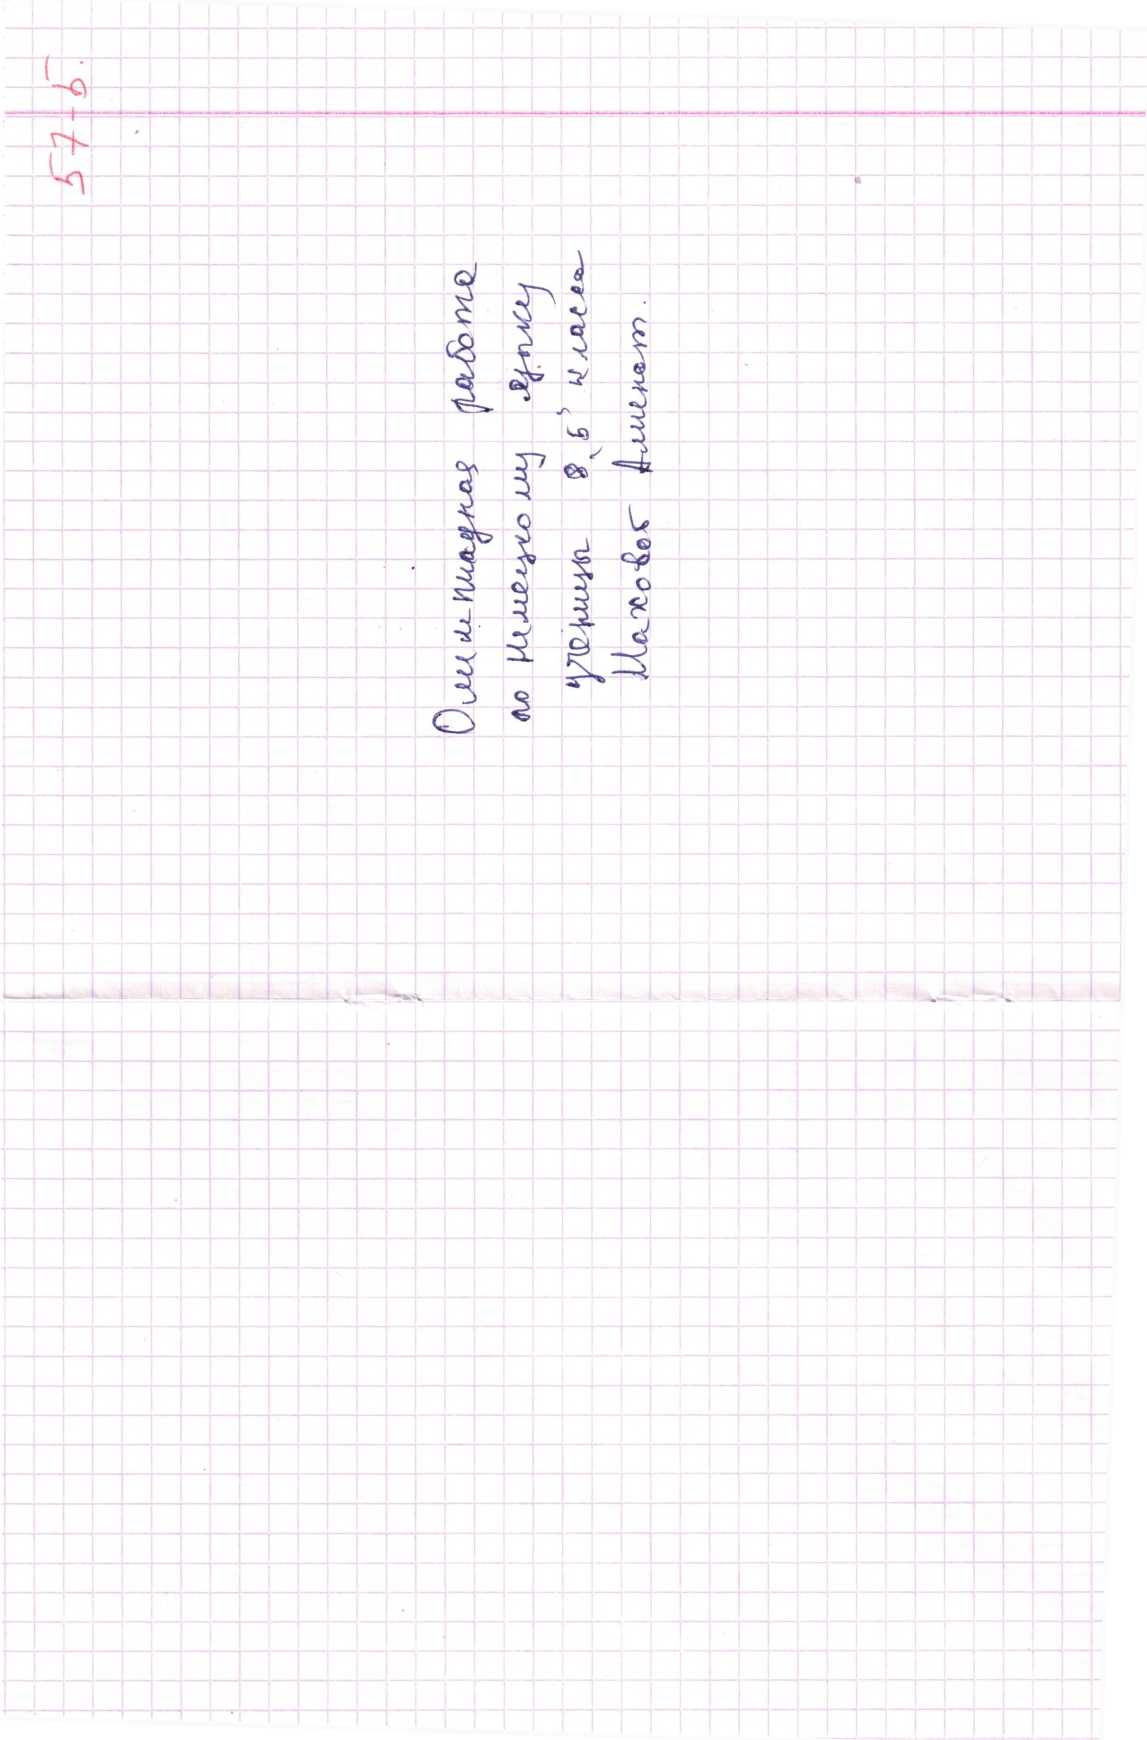 57-б.
Олимпиадная работа
по немецкому языку
ученицы 8 „Б" класса
Маховой Аминат.